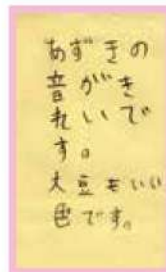 あずきの
音がき
れいで
す。
大豆もいい
色です。